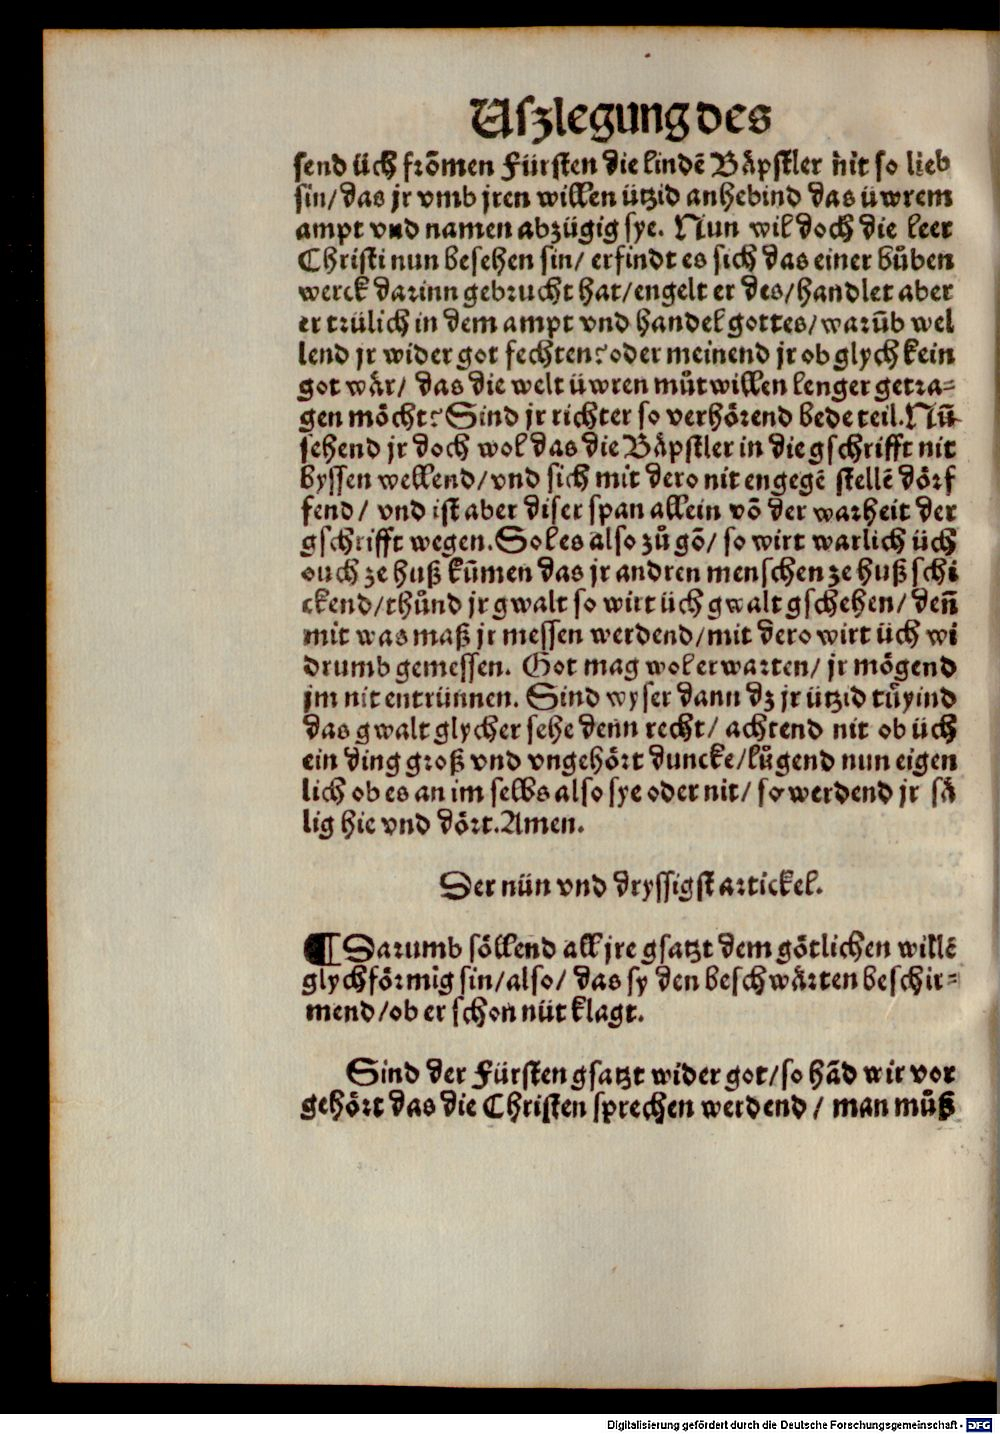 Uſzlegung des
ſend üch frõmen Fürſten die lindẽ Bäpſtler nit ſo lieb
ſin/ das jr vmb jren willen ützid anhebind das üwrem
ampt vnd namen abzügig ſye. Nun wil doch die leer
Chriſti nun beſehen ſin/ erfindt es ſich das einer bůben
werck darinn gebrucht hat/ engelt er des/ handlet aber
er trülich in dem ampt vnd handel gottes/ warũb wel
lend jr wider got fechten? oder meinend jr ob glych kein
got wär/ das die welt üwren můtwillen lenger getra⸗
gen möcht? Sind jr richter ſo verhörend bede teil. Nũ
ſehend jr doch wol das die Bäpſtler in die gſchrifft nit
byſſen wellend/ vnd ſich mit dero nit engegẽ ſtellẽ dörf
fend/ vnd iſt aber diſer ſpan allein võ der warheit der
gſchrifft wegen. Sol es alſo zů gõ/ ſo wirt warlich üch
ouch ze huß kũmen das jr andren menſchen ze huß ſchi
ckend/ thůnd jr gwalt ſo wirt üch gwalt gſchehen/ deñ
mit was maß jr meſſen werdend/ mit dero wirt üch wi
drumb gemeſſen. Got mag wol erwarten/ jr mögend
jm nit entrünnen. Sind wyſer dann dz jr ützid tůyind
das gwalt glycher ſehe denn recht/ achtend nit ob üch
ein ding groß vnd vngehört duncke/ lůgend nun eigen
lich ob es an im ſelbs alſo ſye oder nit/ ſo werdend jr ſä
lig hie vnd dört. Amen.
Der nün vnd dryſſigſt artickel.
¶ Darumb ſöllend all jre gſatzt dem götlichen willẽ
glychförmig ſin/ alſo/ das ſy den beſchwärten beſchir⸗
mend/ ob er ſchon nüt klagt.
Sind der Fürſten gſatzt wider got/ ſo hãd wir vor
gehört das die Chriſten ſprechen werdend / man můß
Digitalisierung gefördert durch die Deutsche Forschungsgemeinschaft - DFG